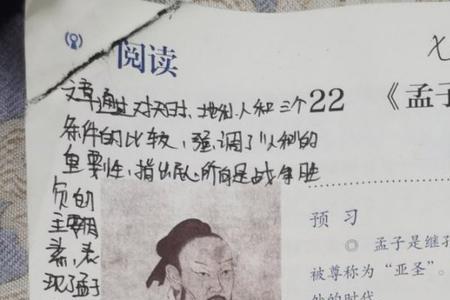 阅读
七
文章通过对天时、地利、人和三个
22 《孟子
条件的比较，强调了"人和"的
重要性，指出民心所向是战争胜
负的
主要因
素，表
现了孟子
预 习
◎ 孟子是继孔
被尊称为“亚圣”。
他的时代